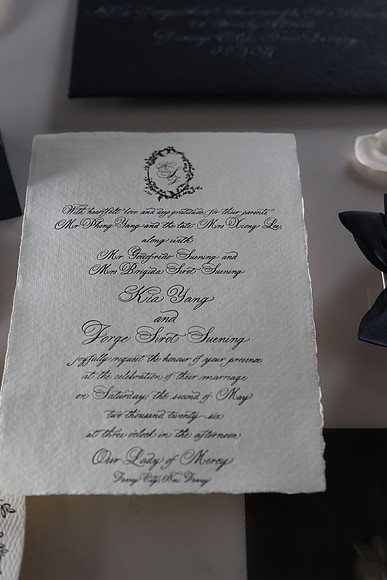 Jersey City, New Jersey
07304
With heartfelt love and joy gratitude for their parents
Mr Pheng Yang and the late Mrs Xiong Lee
along with
Mr Suening and
Mrs Brigida Sirot Suening
Kia Yang
and
Jorge Sirot Suening
joyfully request the honour of your presence
at the celebration of their marriage
on Saturday, the second of May
two thousand twenty-six
at three o'clock in the afternoon
Our Lady of Mercy
Jersey City, New Jersey